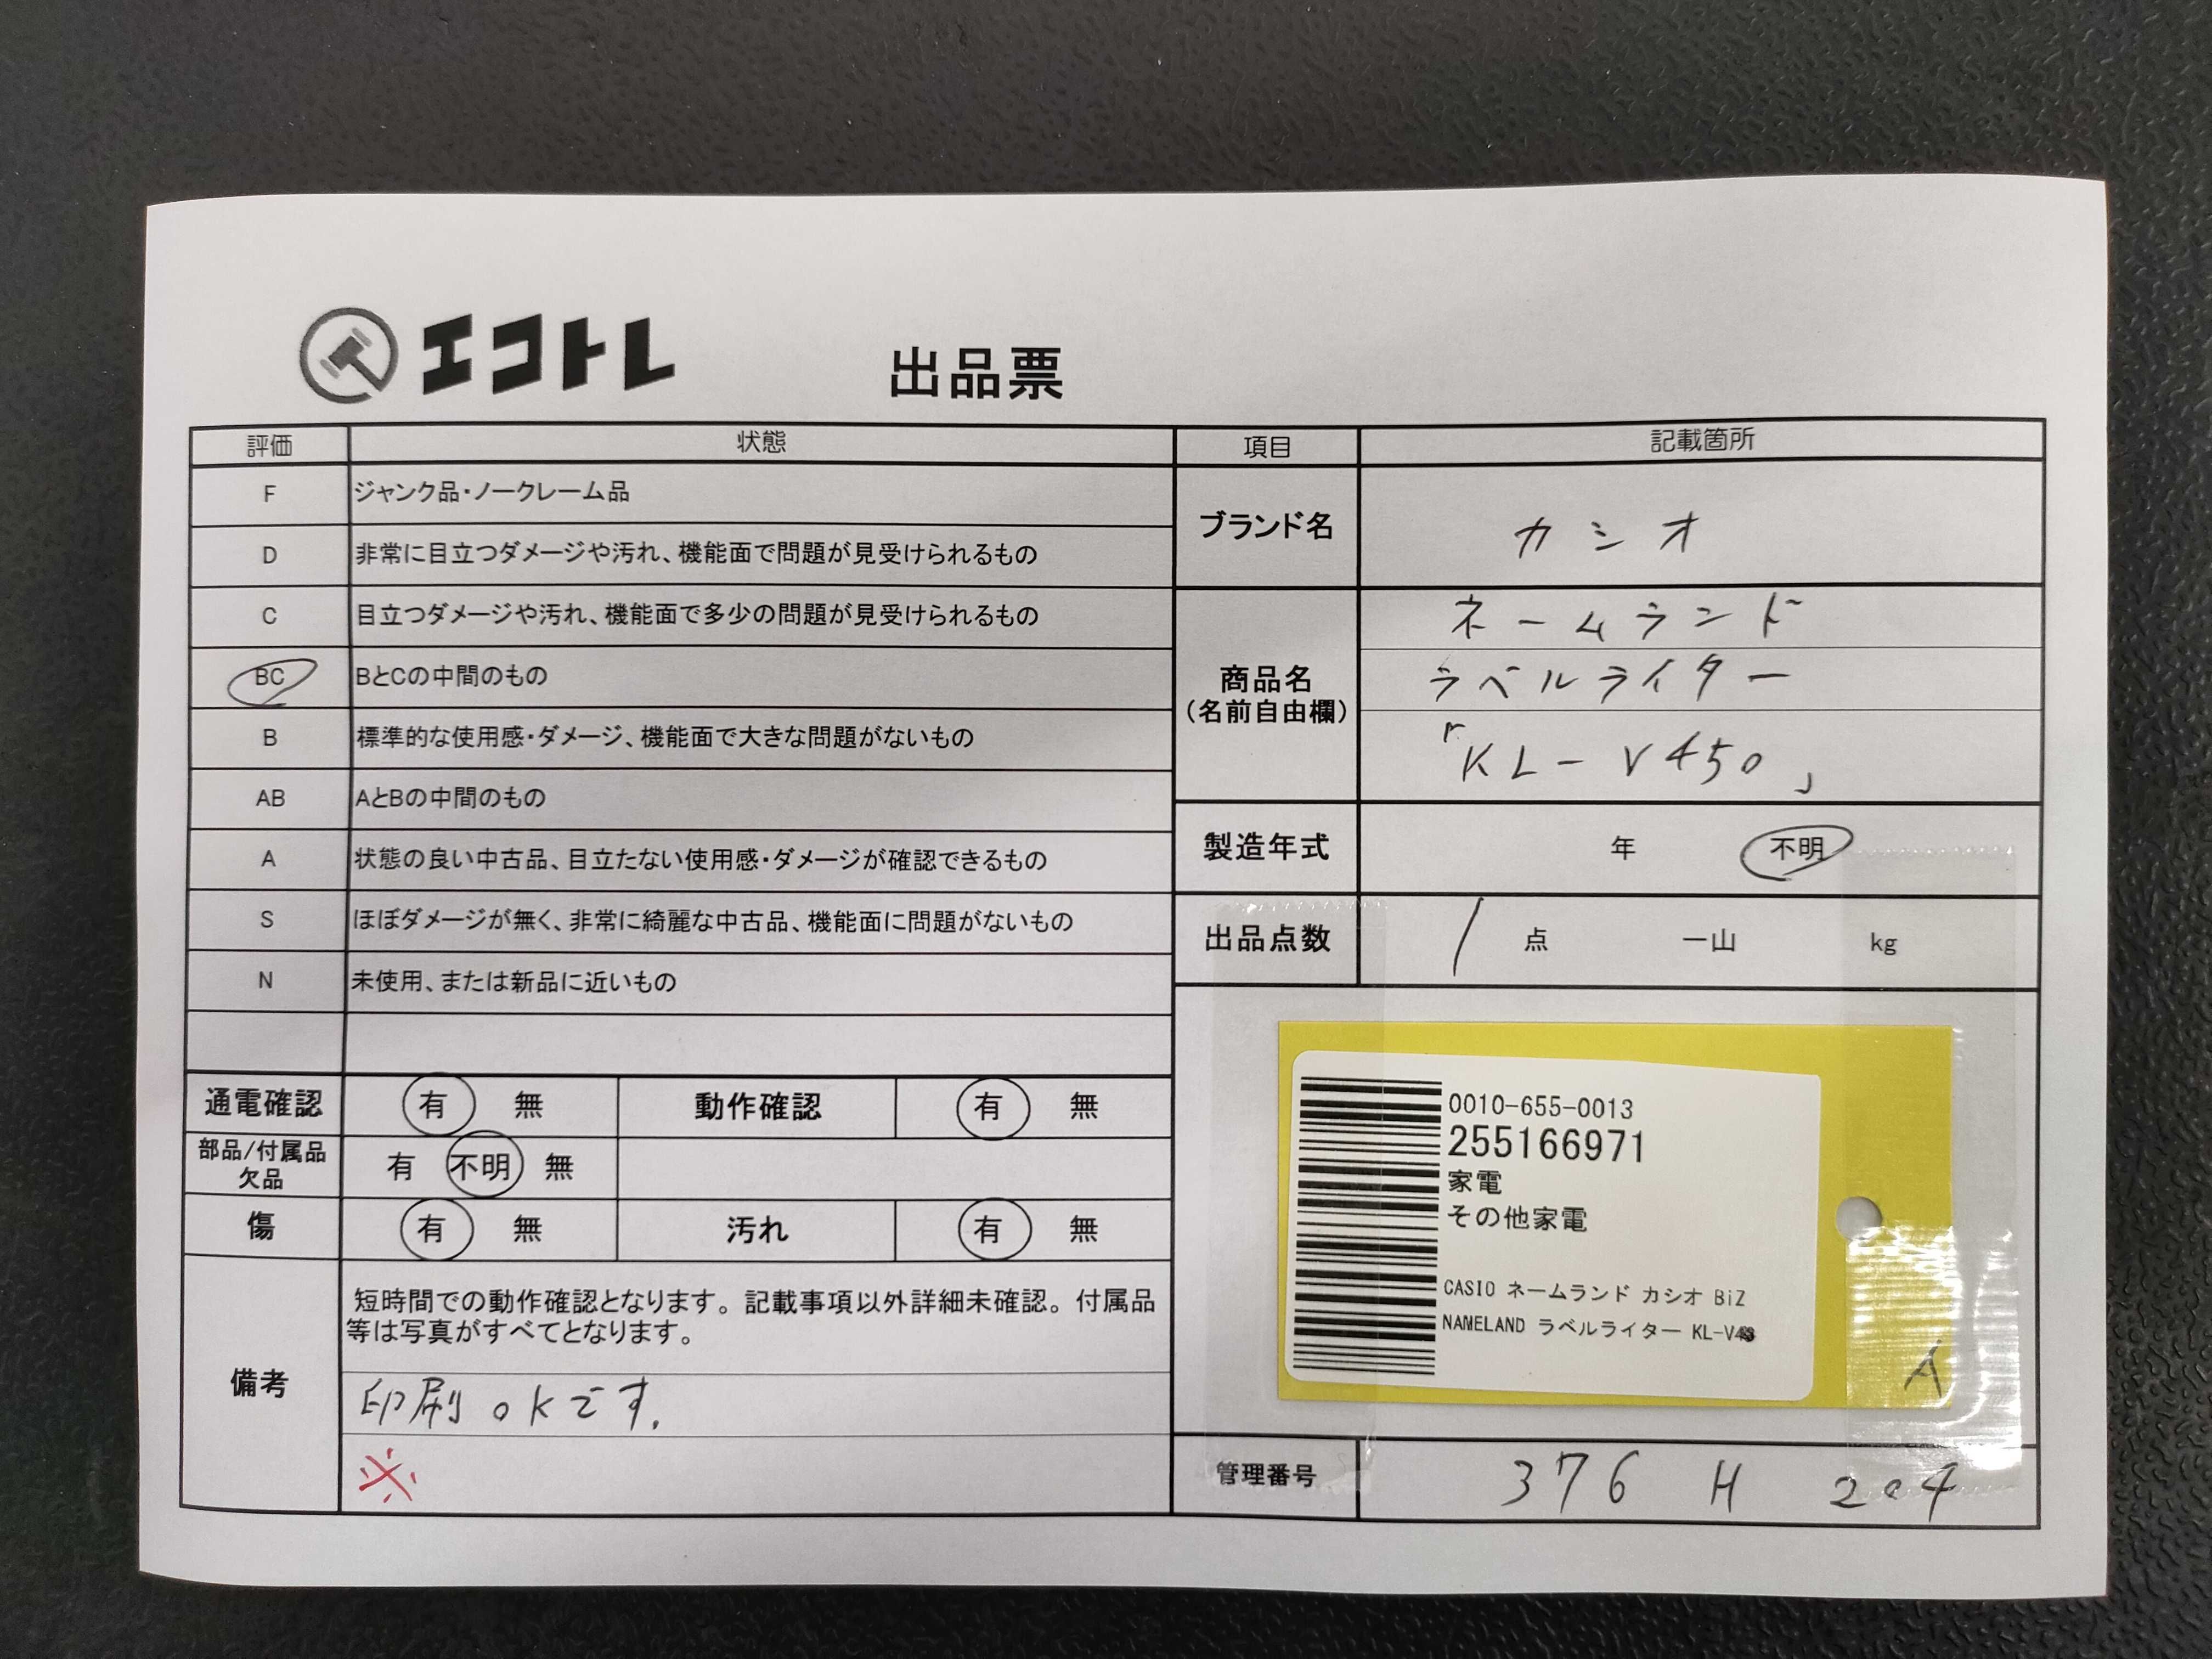 エコトレ
出品票
評価 状態
F ジャンク品・ノークレーム品
D 非常に目立つダメージや汚れ、機能面で問題が見受けられるもの
C 目立つダメージや汚れ、機能面で多少の問題が見受けられるもの
BC BとCの中間のもの
B 標準的な使用感・ダメージ、機能面で大きな問題がないもの
AB AとBの中間のもの
A 状態の良い中古品、目立たない使用感・ダメージが確認できるもの
S ほぼダメージが無く、非常に綺麗な中古品、機能面に問題がないもの
N 未使用、または新品に近いもの
通電確認 有 無 動作確認 有 無
部品/付属品
欠品 有 不明 無
傷 有 無 汚れ 有 無
備考
短時間での動作確認となります。記載事項以外詳細未確認。付属品
等は写真がすべてとなります。
印刷OKです.
※
項目 記載箇所
ブランド名 カシオ
商品名
(名前自由欄)
ネームランド
ラベルライター
「KL-V450」
製造年式 年 不明
出品点数 1 点 一山 kg
0010-655-0013
255166971
家電
その他家電
CASIO ネームランド カシオ BiZ
NAMELAND ラベルライター
A
管理番号 376 H 204